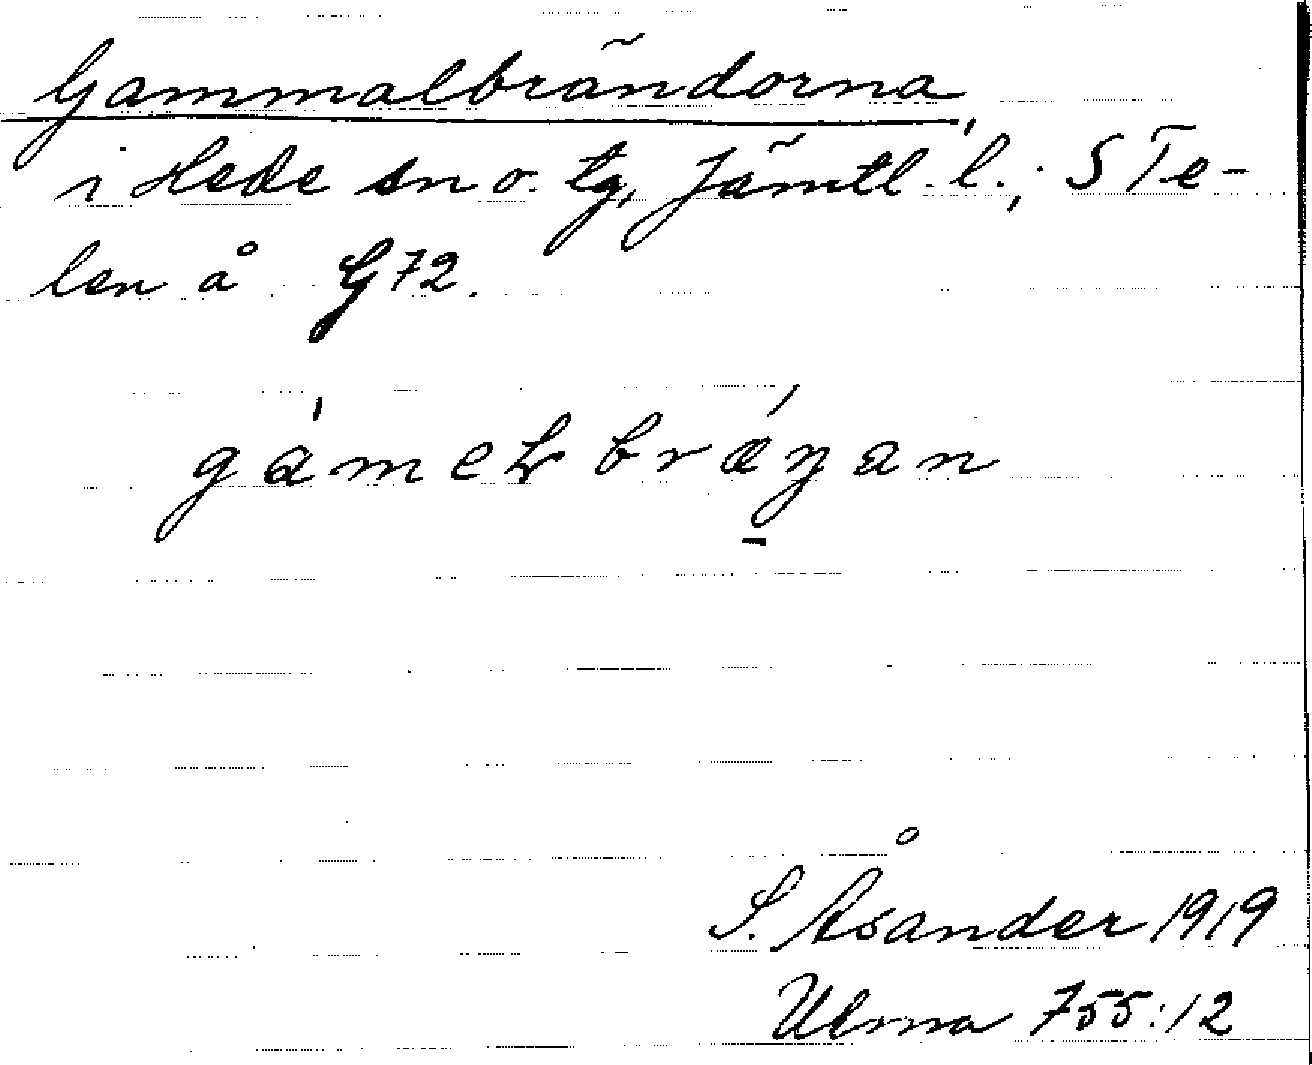 Gammalbrändorna,
i Hede sn o. tg, Jämtl. l.; S Te-
len å G72.
S. Åsander 1919
Ulma 755:12